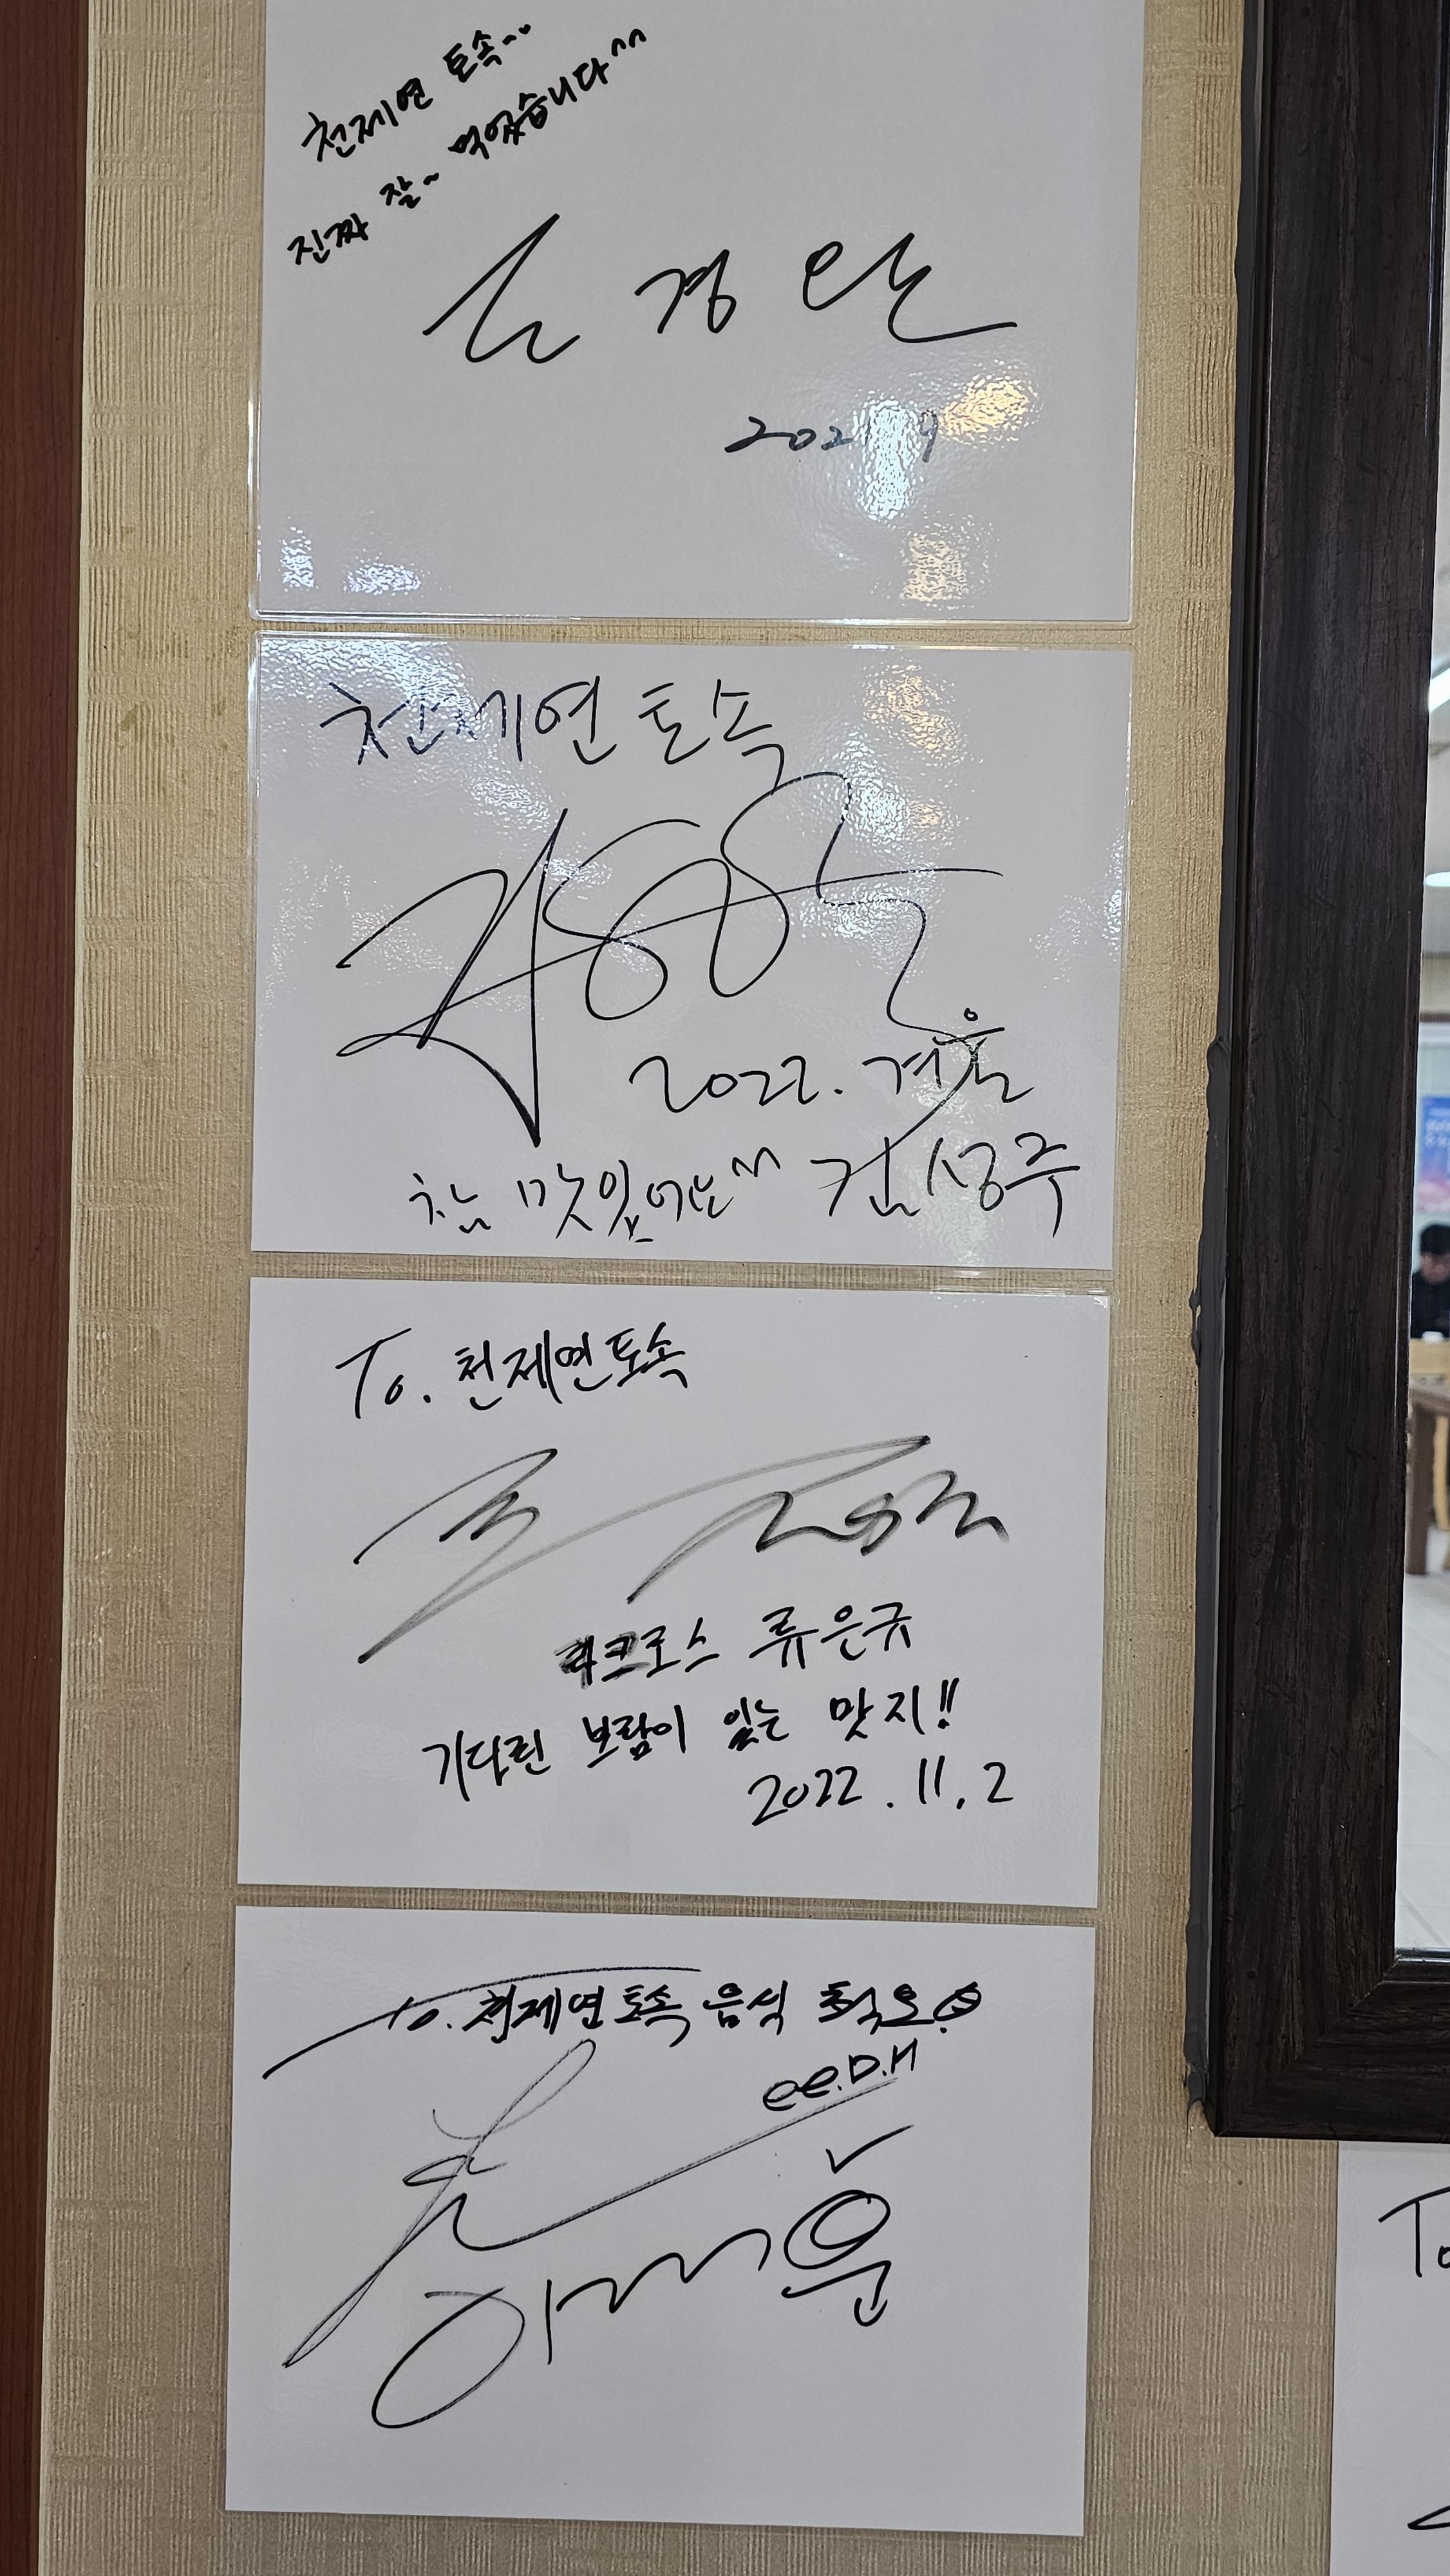 천제연 토속~~
진짜 잘~ 먹었습니다^^
2021 9
천제연 토속
2022. 겨울
참 맛있어요^^ 김성주
To. 천제연토속
라크로스 류은규
기다린 보람이 있는 맛지!!
2022. 11. 2
To. 천제연토속 음식 최고
To